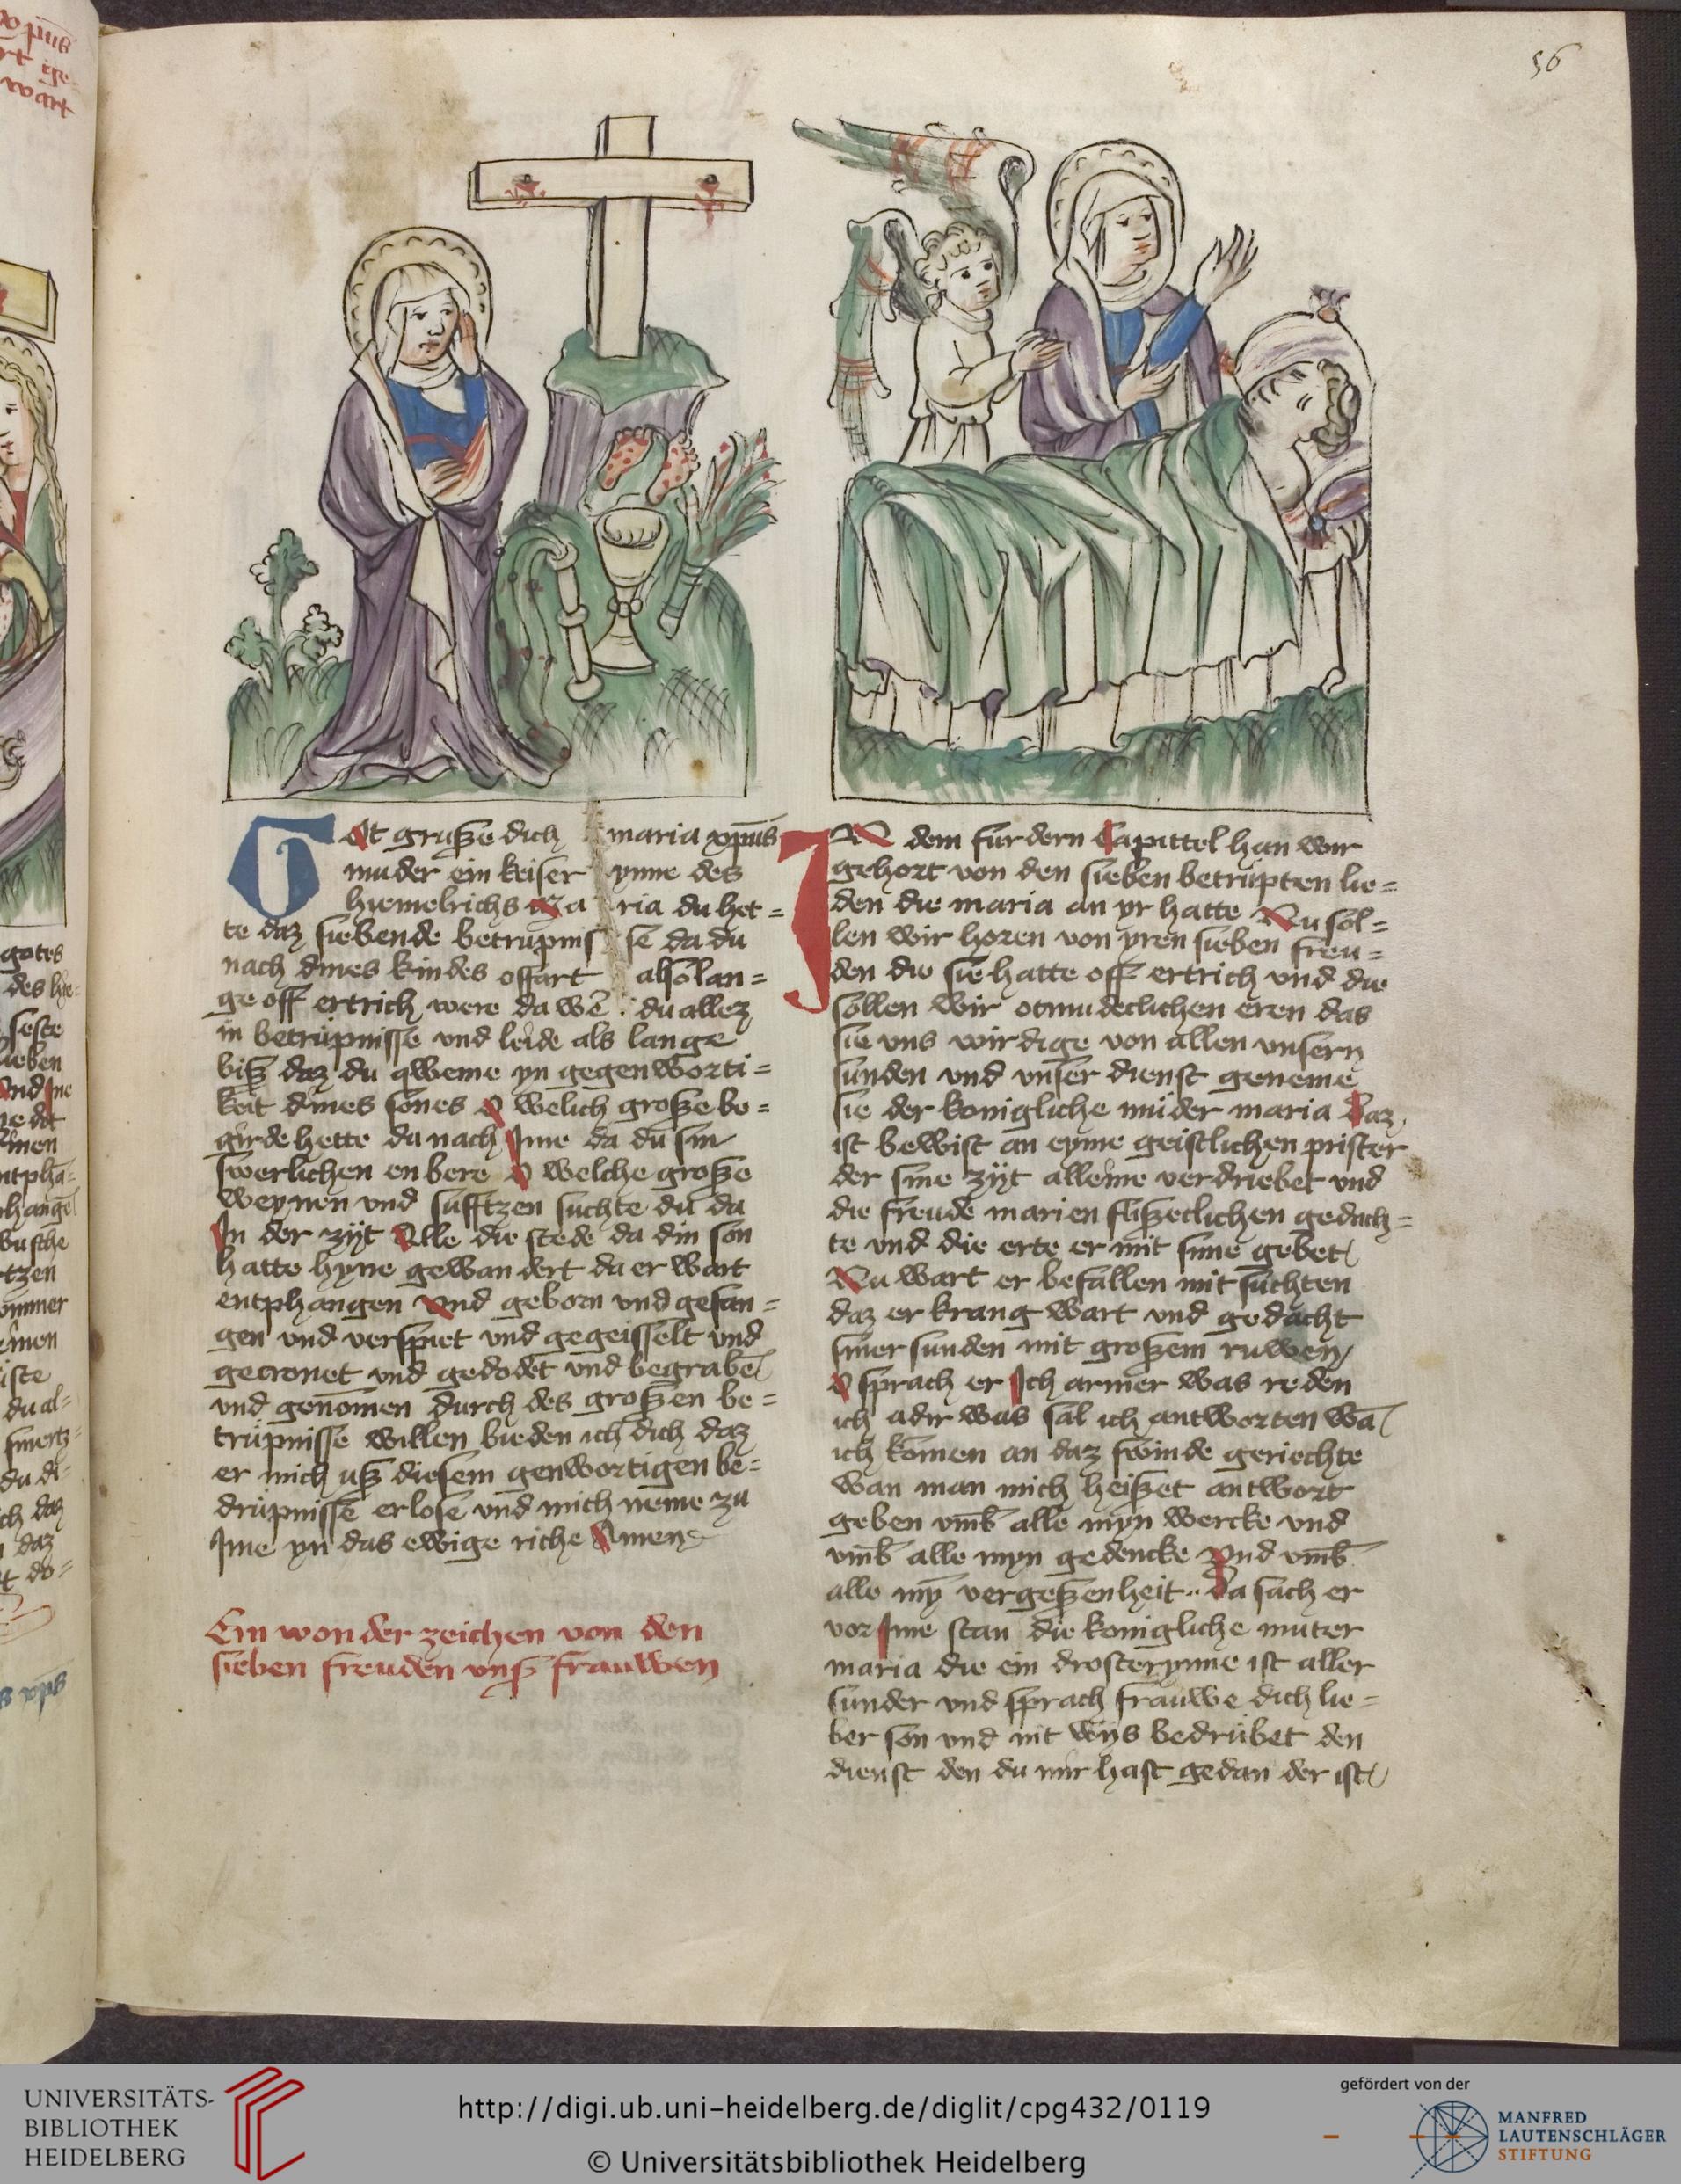 56
Got grusze dich maria xp̄us
muder ein keiser ynne des
hiemelrichs Maria du het=
te daz siebende betrupnisse da du
nach dines kindes offart also lan=
ge off ertrich were da wē du allez
in betrupnisse und leide als lange
bisz daz du qweme yn gegenworti=
keit dines sones O welich grosze be=
girde hette du nach Ime da du sin
swerlichen enbere O welche grosze
weynen und sufftzen suchte du da
In der zijt Alle die stede da din son
hatte hyne gewandert da er wart
entphangen Und geborn und gefan=
gen und verspiet und gegeisselt und
gecronet und gedodet und begrabē
und genōmen durch des groszen be=
trupnisse willen bieden ich dich daz
er mich usz diesem genwortigen be=
drupnisse erlose und mich neme zu
Ime yn das ewige riche Amen
Ein wonder zeichen von den
sieben freuden vnsz frauwen
IN dem furdern Capittel han wir
gehort von den sieben betrupten lie=
den die maria an yr hatte Nu sol=
len wir horen von yren sieben freu=
den die sie hatte off ertrich und die
sollen wir otmudeclichen eren das
sie uns wirdige von allen unsern
sunden und unser dienst geneme
sie der konigliche muder maria Daz
ist bewist an eyme geistlichen prister
der sine zijt alleine verdriebet und
die freude marien fliszeclichen gedach=
te und die erte er mit sime gebet
Nu wart er befallen mit suchten
daz er krang wart und gedacht
siner sunden mit groszem ruwen
O sprach er Ich armer was reden
ich adir was sal ich antworten wā
ich komen an daz swinde geriechte
wan man mich heiszet antwort
geben vmb alle myn wercke und
vmb alle myn gedencke Und vmb
alle mȳ vergeszenheit Da sach er
vor Ime stan die konigliche muter
maria die ein drosterynne ist aller
sunder und sprach frauwe dich lie=
ber son und nit wijs bedrubet den
dienst den du mir hast gedan der ist
UNIVERSITÄTS-
BIBLIOTHEK
HEIDELBERG
http://digi.ub.uni-heidelberg.de/diglit/cpg432/0119
© Universitätsbibliothek Heidelberg
gefördert von der
MANFRED
LAUTENSCHLÄGER
STIFTUNG